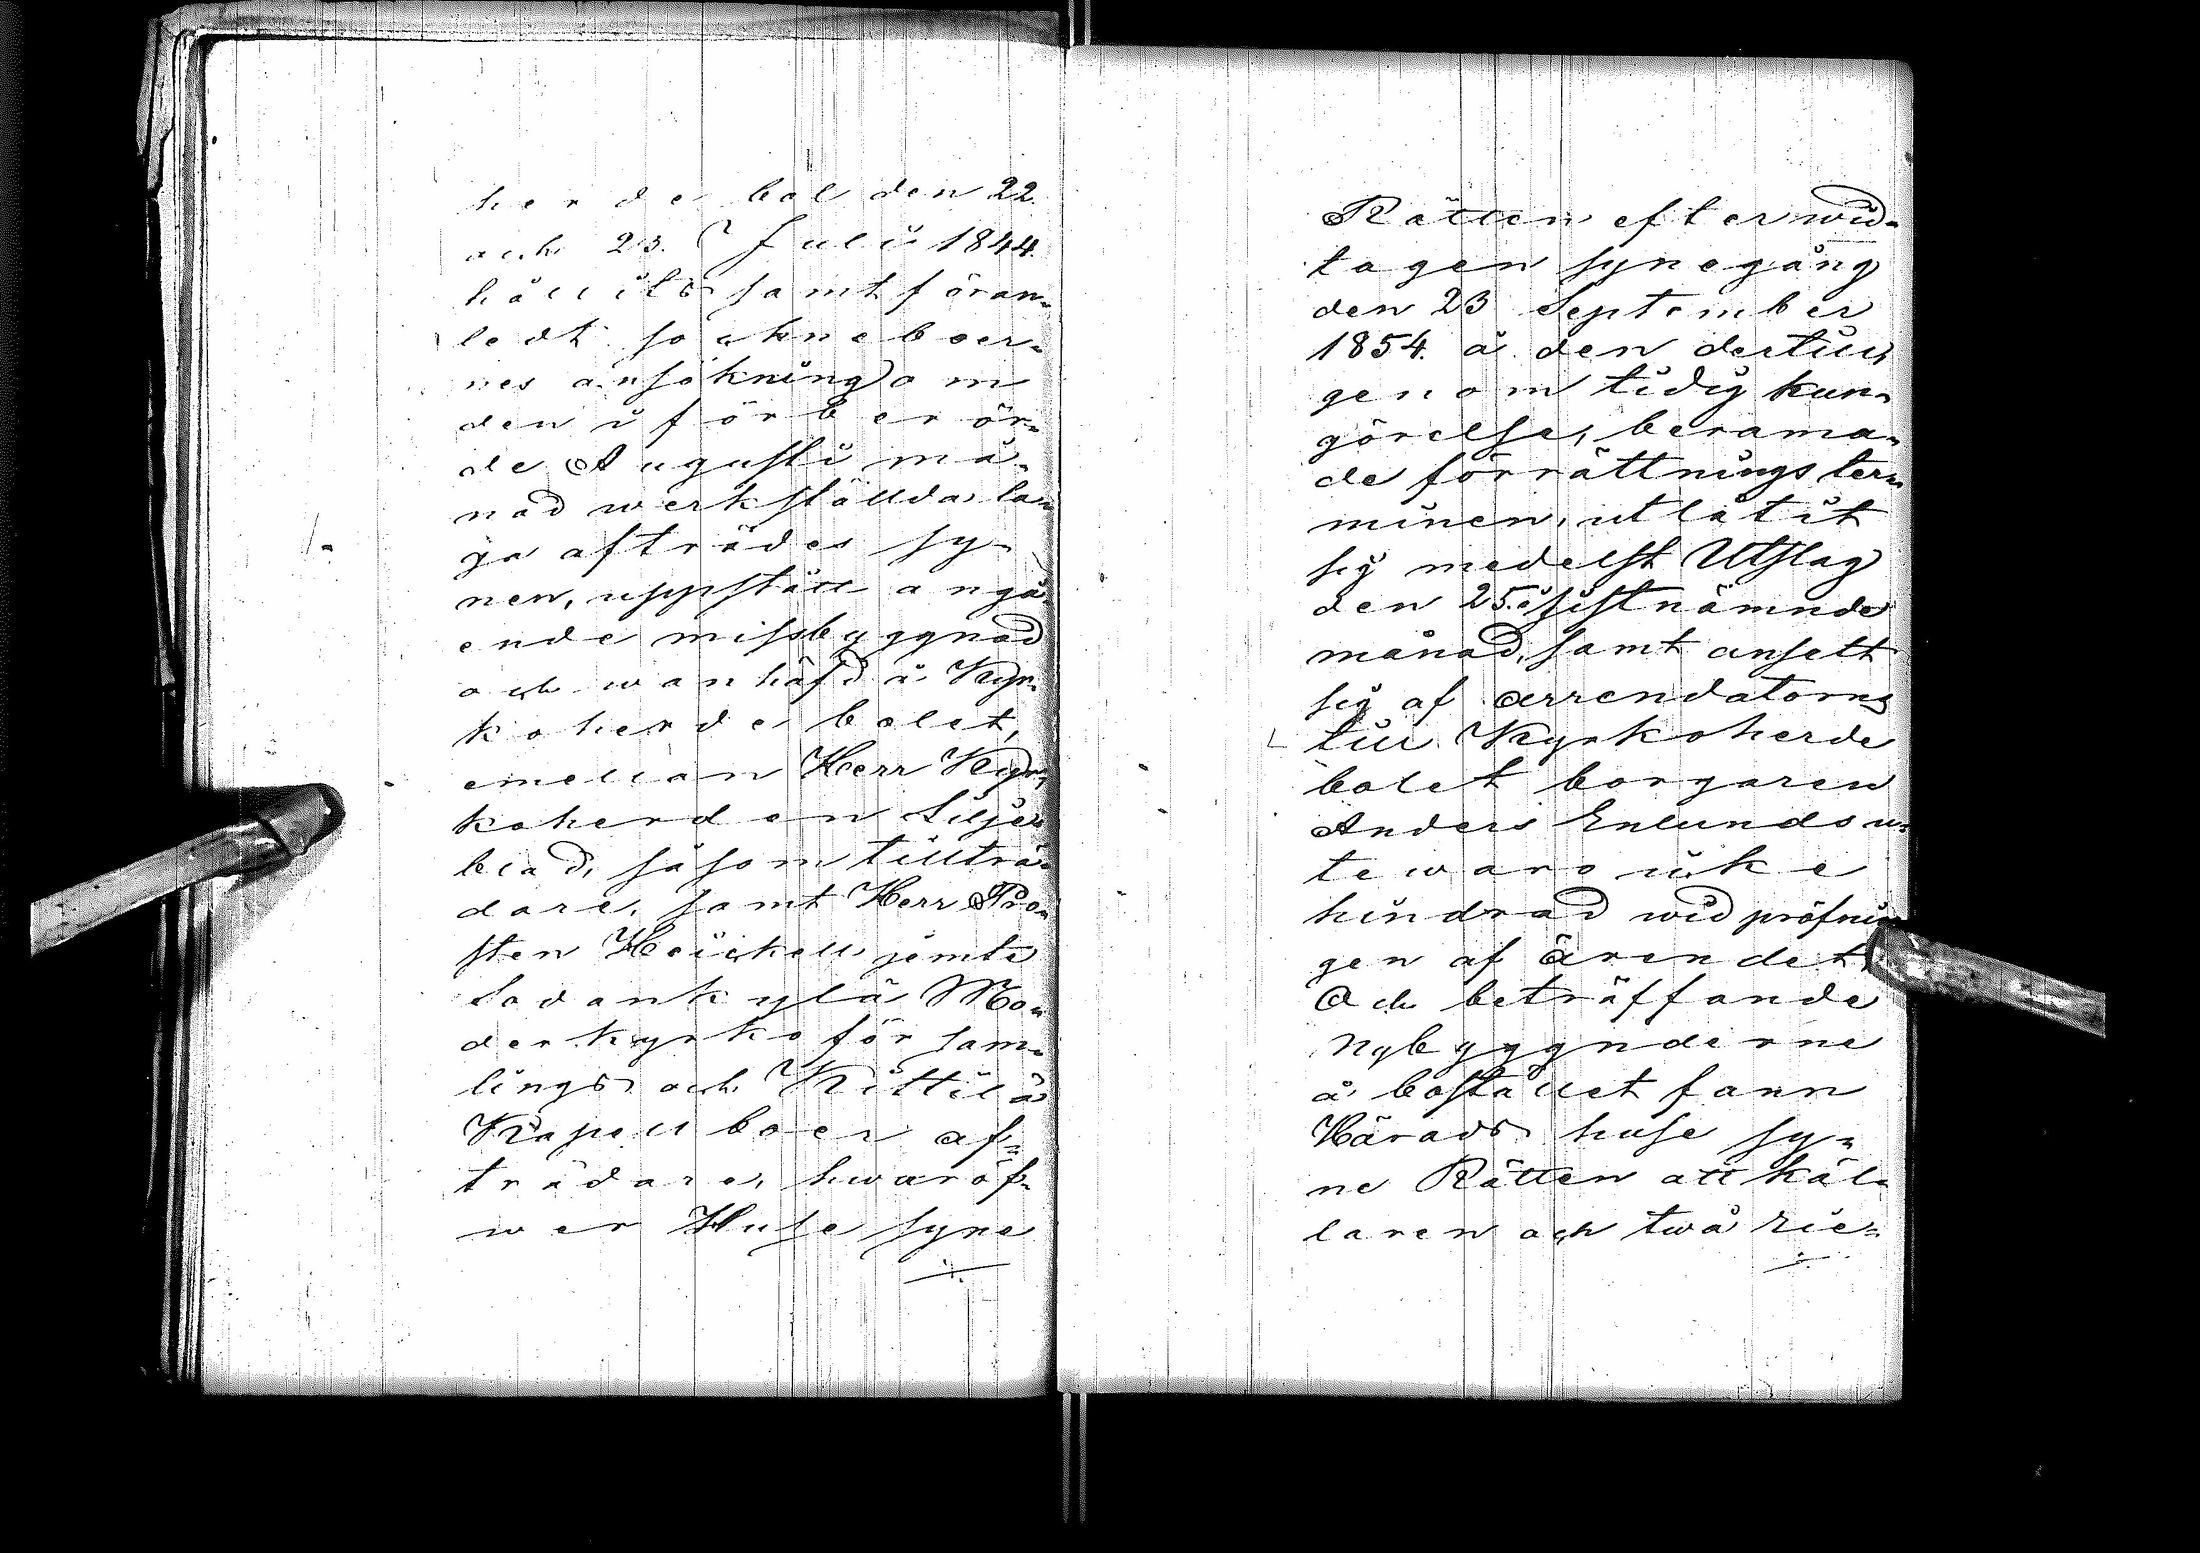 herde bol den 22.
och 23. Julii 1844.
hållits samt föran-
ledt sockneboer-
nes ansökning om
den i förberör-
de Augusti må-
nad werkställda la-
ga afträdes sy-
nen, uppstått angå-
ende missbyggnad
och wanhäfd å Kyr-
koherde bolet,
emellan Herr Kyr-
koherden Lilje-
blad, såsom tillträ-
dare, samt Herr Pro-
sten Heickell jemte
Sodankylä Mo-
derkyrko för sam-
lings och Kittilä
Kapell boer af-
trädare, hwaröf-
wer Huse syne
Rätten efter wid-
tagen synegång
den 23 September
1854. å den dertill,
genom tidig kun-
görelse, berama-
de förrättnings ter-
minen, utlåtit
sig medelst Utslag
den 25. i sistnämnde
månad, samt ansett
sig af arrendatorns
till Kyrkoherde
bolet borgaren
Anders Enlunds u-
tewaro icke
hindrad wid pröfnin
gen af ärendet,
Och beträffande
Nybyggnderne
å bostället fann
Härads huse sy-
ne Rätten att käl-
laren och twå rie-